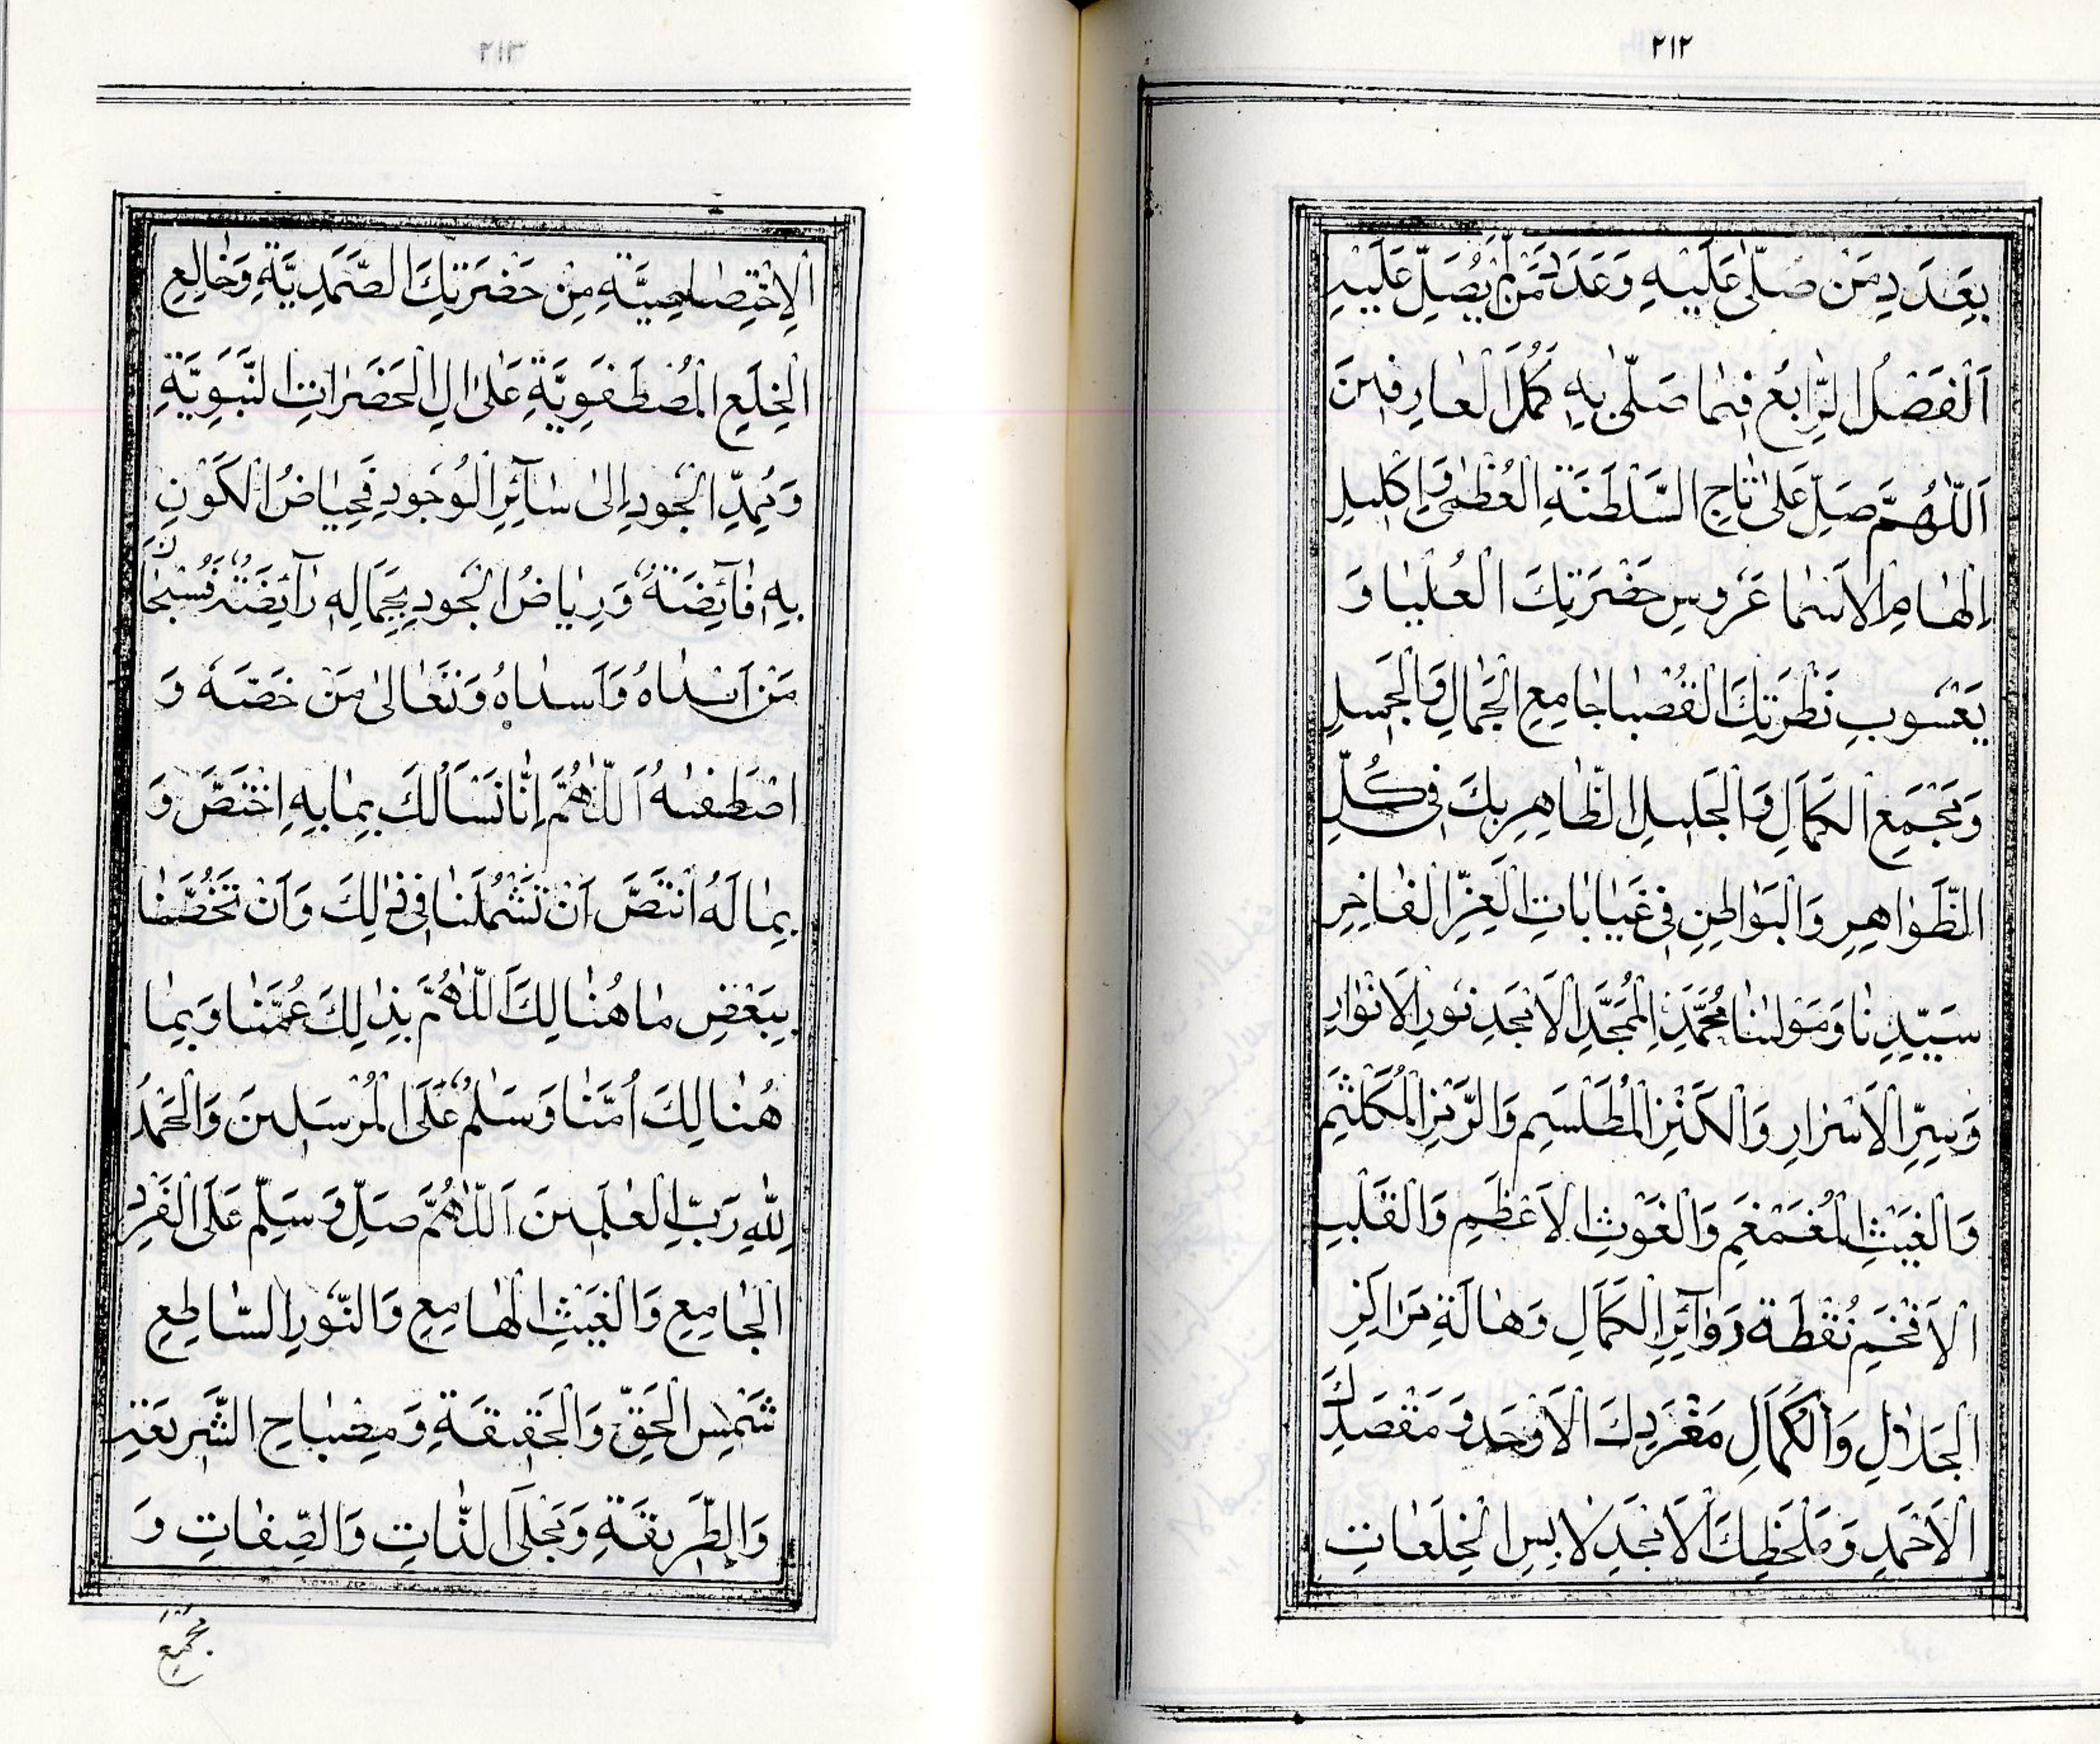 ٢١٢
بِعَدَدِ مَنْ صَلّٰى عَلَيْهِ وَعَدَدَ مَنْ لَمْ يُصَلِّ عَلَيْهِ
اَلْفَصْلُ الرَّابِعُ فِيمَا صَلّٰى بِهِ كُمَّلُ الْعَارِفِينَ
اَللّٰهُمَّ صَلِّ عَلٰى تَاجِ السَّلْطَنَةِ الْعُظْمٰى وَاِكْلِيلِ
اِلْهَامِ الْاَسْمَا عَرُوسِ حَضْرَتِكَ الْعُلْيَا وَ
يَعْسُوبِ نَظْرَتِكَ الْقُصْيَا جَامِعِ الْجَمَالِ وَالْجَمِيلِ
وَمَجْمَعِ الْكَمَالِ وَالْجَلِيلِ الظَّاهِرِ بِكَ فِى كُلِّ
الظَّوَاهِرِ وَالْبَوَاطِنِ فِى غَيَابَاتِ الْعِزِّ الْفَاخِرِ
سَيِّدِنَا وَمَوْلٰينَا مُحَمَّدَنِ الْمُمَجَّدِ الْاَمْجَدِ نُورِ الْاَنْوَارِ
وَسِرِّ الْاَسْرَارِ وَالْكَنْزِ الْمُطَلْسَمِ وَالرَّمْزِ الْمُكَلْثَمِ
وَالْغَيْثِ الْمُغَمْغَمِ وَالْغَوْثِ الْاَعْظَمِ وَالْقَلْبِ
الْاَفْخَمِ نُقْطَةِ دَوَآئِرِ الْكَمَالِ وَهَالَةِ مَرَاكِزِ
الْجَلَالِ وَالْكَمَالِ مَفْرَدِكَ الْاَوْحَدِ وَ مَقْصَدِكَ
الْاَحْمَدِ وَمَلْحَظِكَ الْاَمْجَدِ لَابِسِ الْخِلَعَاتِ
٢١٣
الْاِخْتِصَاصِيَّةِ مِنْ حَضْرَتِكَ الصَّمَدِيَّةِ وَخَالِعِ
الْخِلَعِ الْمُصْطَفَوِيَّةِ عَلٰى اٰلِ الْحَضَرَاتِ النَّبَوِيَّةِ
وَمُمِدِّ الْجُودِ اِلٰى سَآئِرِ الْوُجُودِ فَحِيَاضُ الْكَوْنِ
بِهِ فَآئِضَةٌ وَرِيَاضُ الْجُودِ بِجَمَالِهِ رَآئِضَةٌ فَسُبْحَانَ
مَنْ اَسْدَاهُ وَتَعَالٰى مَنْ خَصَّهُ وَ
اصْطَفٰيهُ اَللّٰهُمَّ اِنَّا نَسْاَلُكَ بِمَا بِهِ اِخْتَصَّ وَ
بِمَا لَهُ انْتَصَّ اَنْ تَشْمُلَنَا فِى ذٰلِكَ وَاَنْ تَخُصَّنَا
بِبَعْضِ مَا هُنَالِكَ اَللّٰهُمَّ بِذٰلِكَ عُمَّنَا وَبِمَا
هُنَالِكَ اُمَّنَا وَسَلَامٌ عَلَى الْمُرْسَلِينَ وَالْحَمْدُ
لِلّٰهِ رَبِّ الْعٰلَمِينَ اَللّٰهُمَّ صَلِّ وَ سَلِّمْ عَلَى الْفَرْدِ
الْجَامِعِ وَالْغَيْثِ الْهَامِعِ وَالنُّورِ السَّاطِعِ
شَمْسِ الْحَقِّ وَالْحَقِيقَةِ وَمِصْبَاحِ الشَّرِيعَةِ
وَالطَّرِيقَةِ وَمَجْلَى الذَّاتِ وَالصِّفَاتِ وَ
مَجْمَعِ